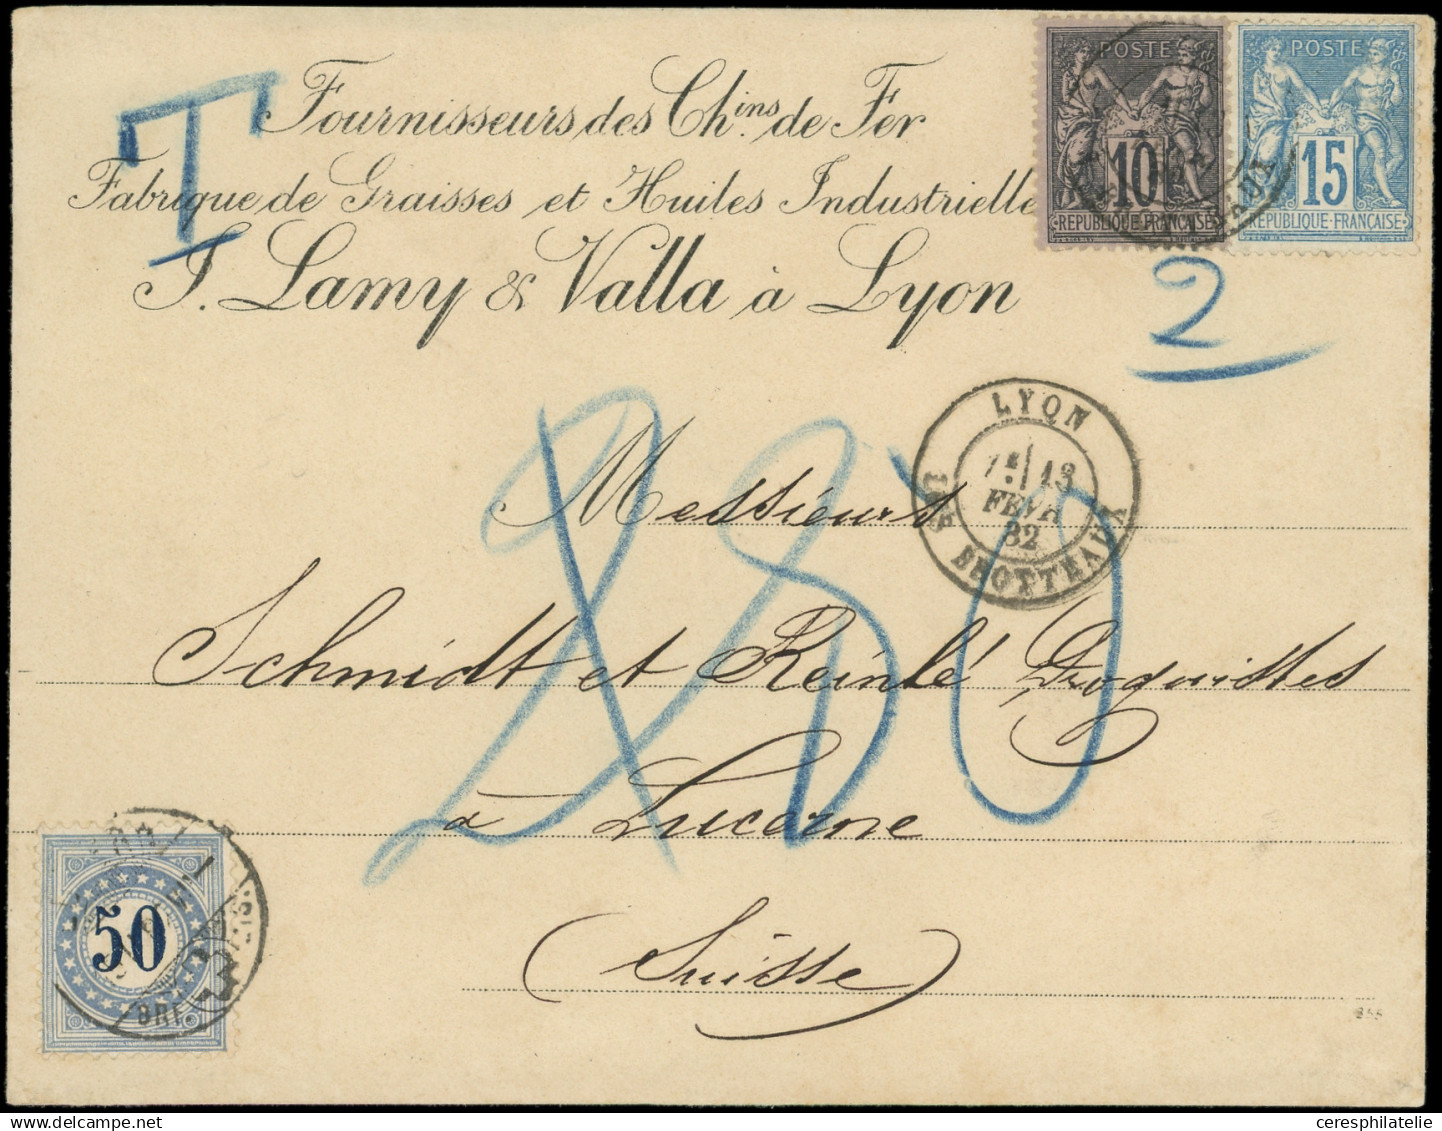 T
Fournisseurs des Ch.ins de Fer
Fabrique de Graisses et Huiles Industrielle
J. Lamy & Valla à Lyon
POSTE
10
REPUBLIQUE FRANCAISE
POSTE
15
REPUBLIQUE-FRANCAISE
2
LYON
13
FEVR
82
LES BROTTEAUX
50
Messieurs
Schmidt et Reinlé Droguistes
à Lucerne
(Suisse)
50
BRF.
855
ceresphilatelie.com